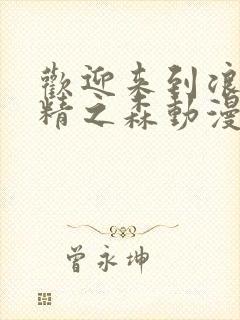 歡迎来到浪
精之森動漫
曾永坤